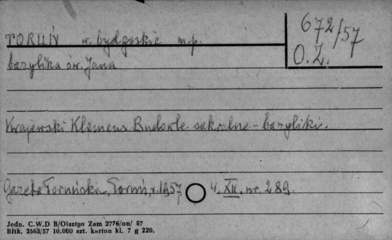 TORUŃ w. bydgoskie m.p.
672/57
O.Z.
bazylika św. Jana
Krajewski Klemens Budowle sakralne - bazyliki.
Gazeta Toruńska, Toruń, r. 1957 4. XII, nr. 289.
Jedn. C.W.D B/Olsztyn Zam 2776/on/ 57
Bltk. 2563/57 10.000 szt. karton kl. 7 g 220,